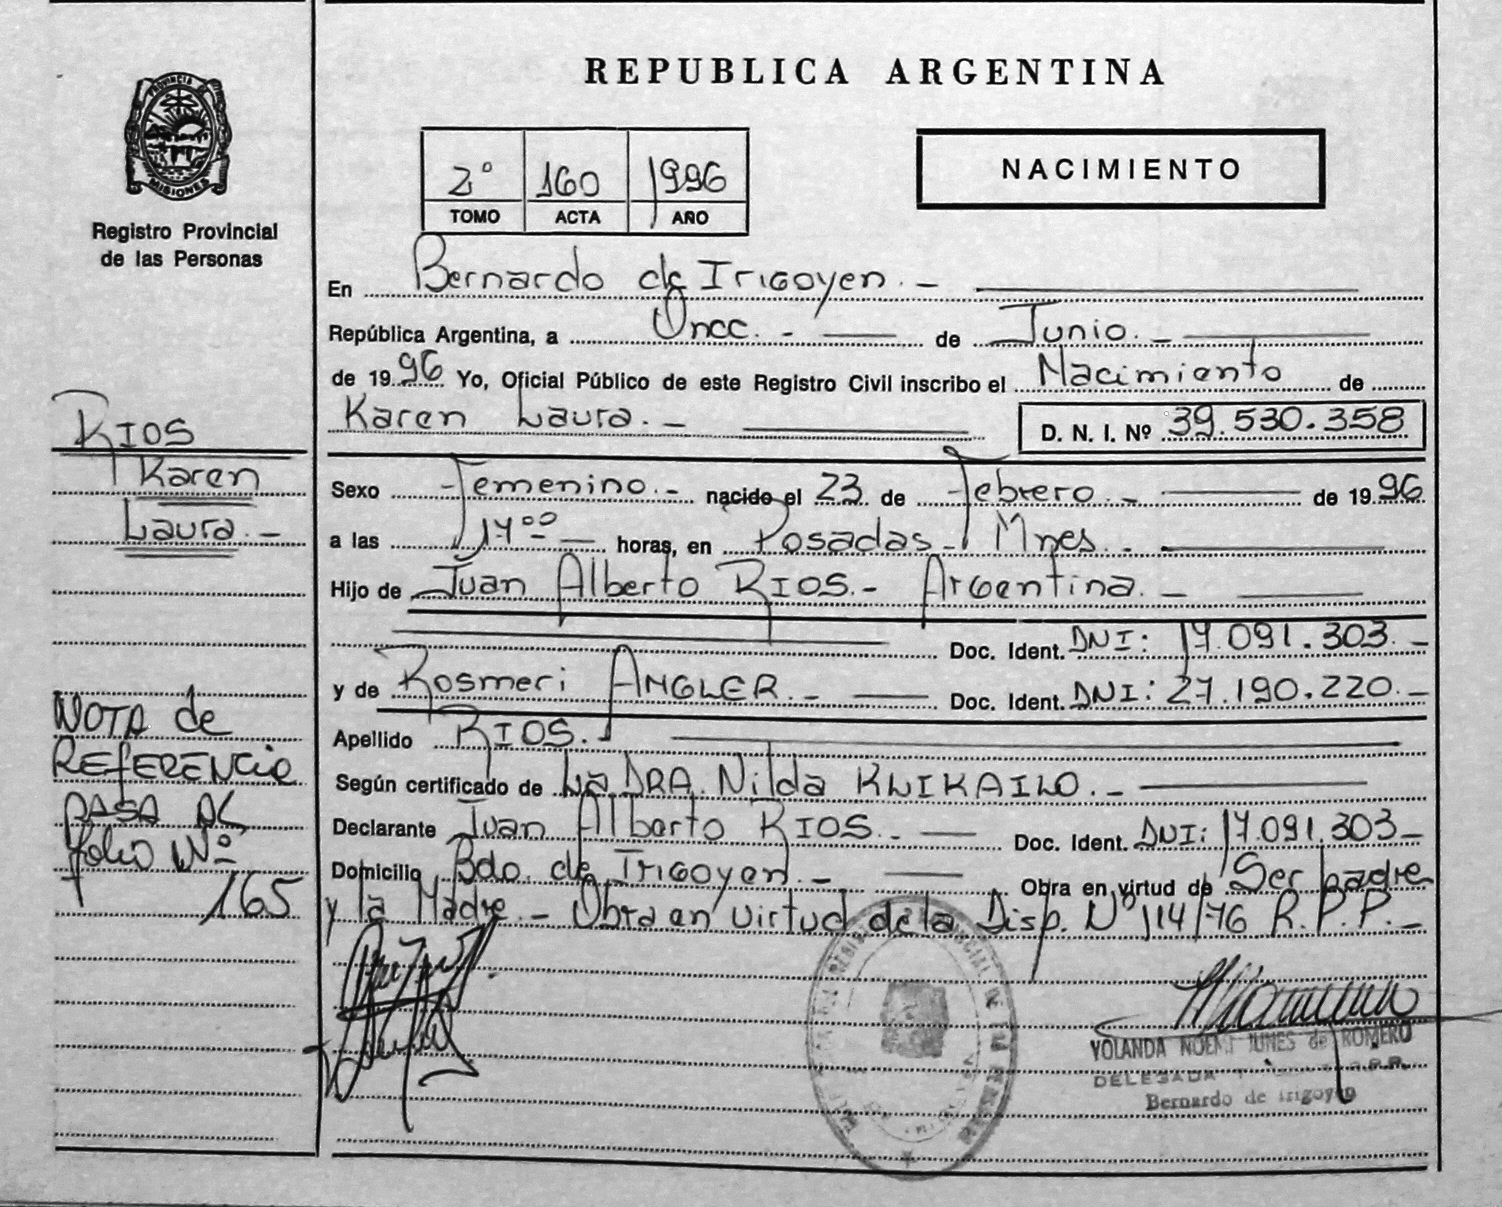 REPUBLICA ARGENTINA
PROVINCIA DE
MISIONES
Registro Provincial
de las Personas
2° 160 1996
TOMO ACTA AÑO
NACIMIENTO
En Bernardo de Irigoyen.-
República Argentina, a Once.- de Junio.-
de 1996 Yo, Oficial Público de este Registro Civil inscribo el Nacimiento de
Karen Laura.- D. N. I. Nº 39.530.358
Sexo Femenino.- nacido el 23 de Febrero.- de 1996
a las 17⁰⁰- horas, en Posadas- Mnes.-
Hijo de Juan Alberto RIOS.- Argentina.-
Doc. Ident. DNI: 17.091.303.-
y de Rosmeri ANGLER.- Doc. Ident. DNI: 27.190.220.-
Apellido RIOS.
Según certificado de La DRA. Nilda
Declarante Juan Alberto RIOS.- Doc. Ident. DNI: 17.091.303-
Domicilio Bdo. de Irigoyen.- Obra en virtud de Ser padre
y la Madre.- Obra en virtud de la Disp. Nº 114/76 R.P.P.-
RIOS
Karen
Laura.-
NOTA de
REFERENCIA
PASA AL
folio Nº
165
YOLANDA NOEMI de ROMERO
DELEGADA
Bernardo de Irigoyen